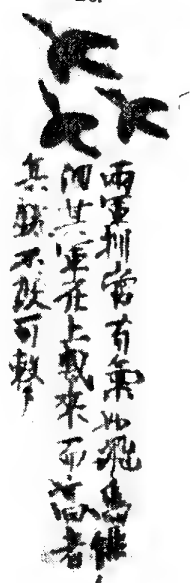 兩軍相當有氣如飛鳥俳
佪其軍在上或來而高者
兵銳不可擊